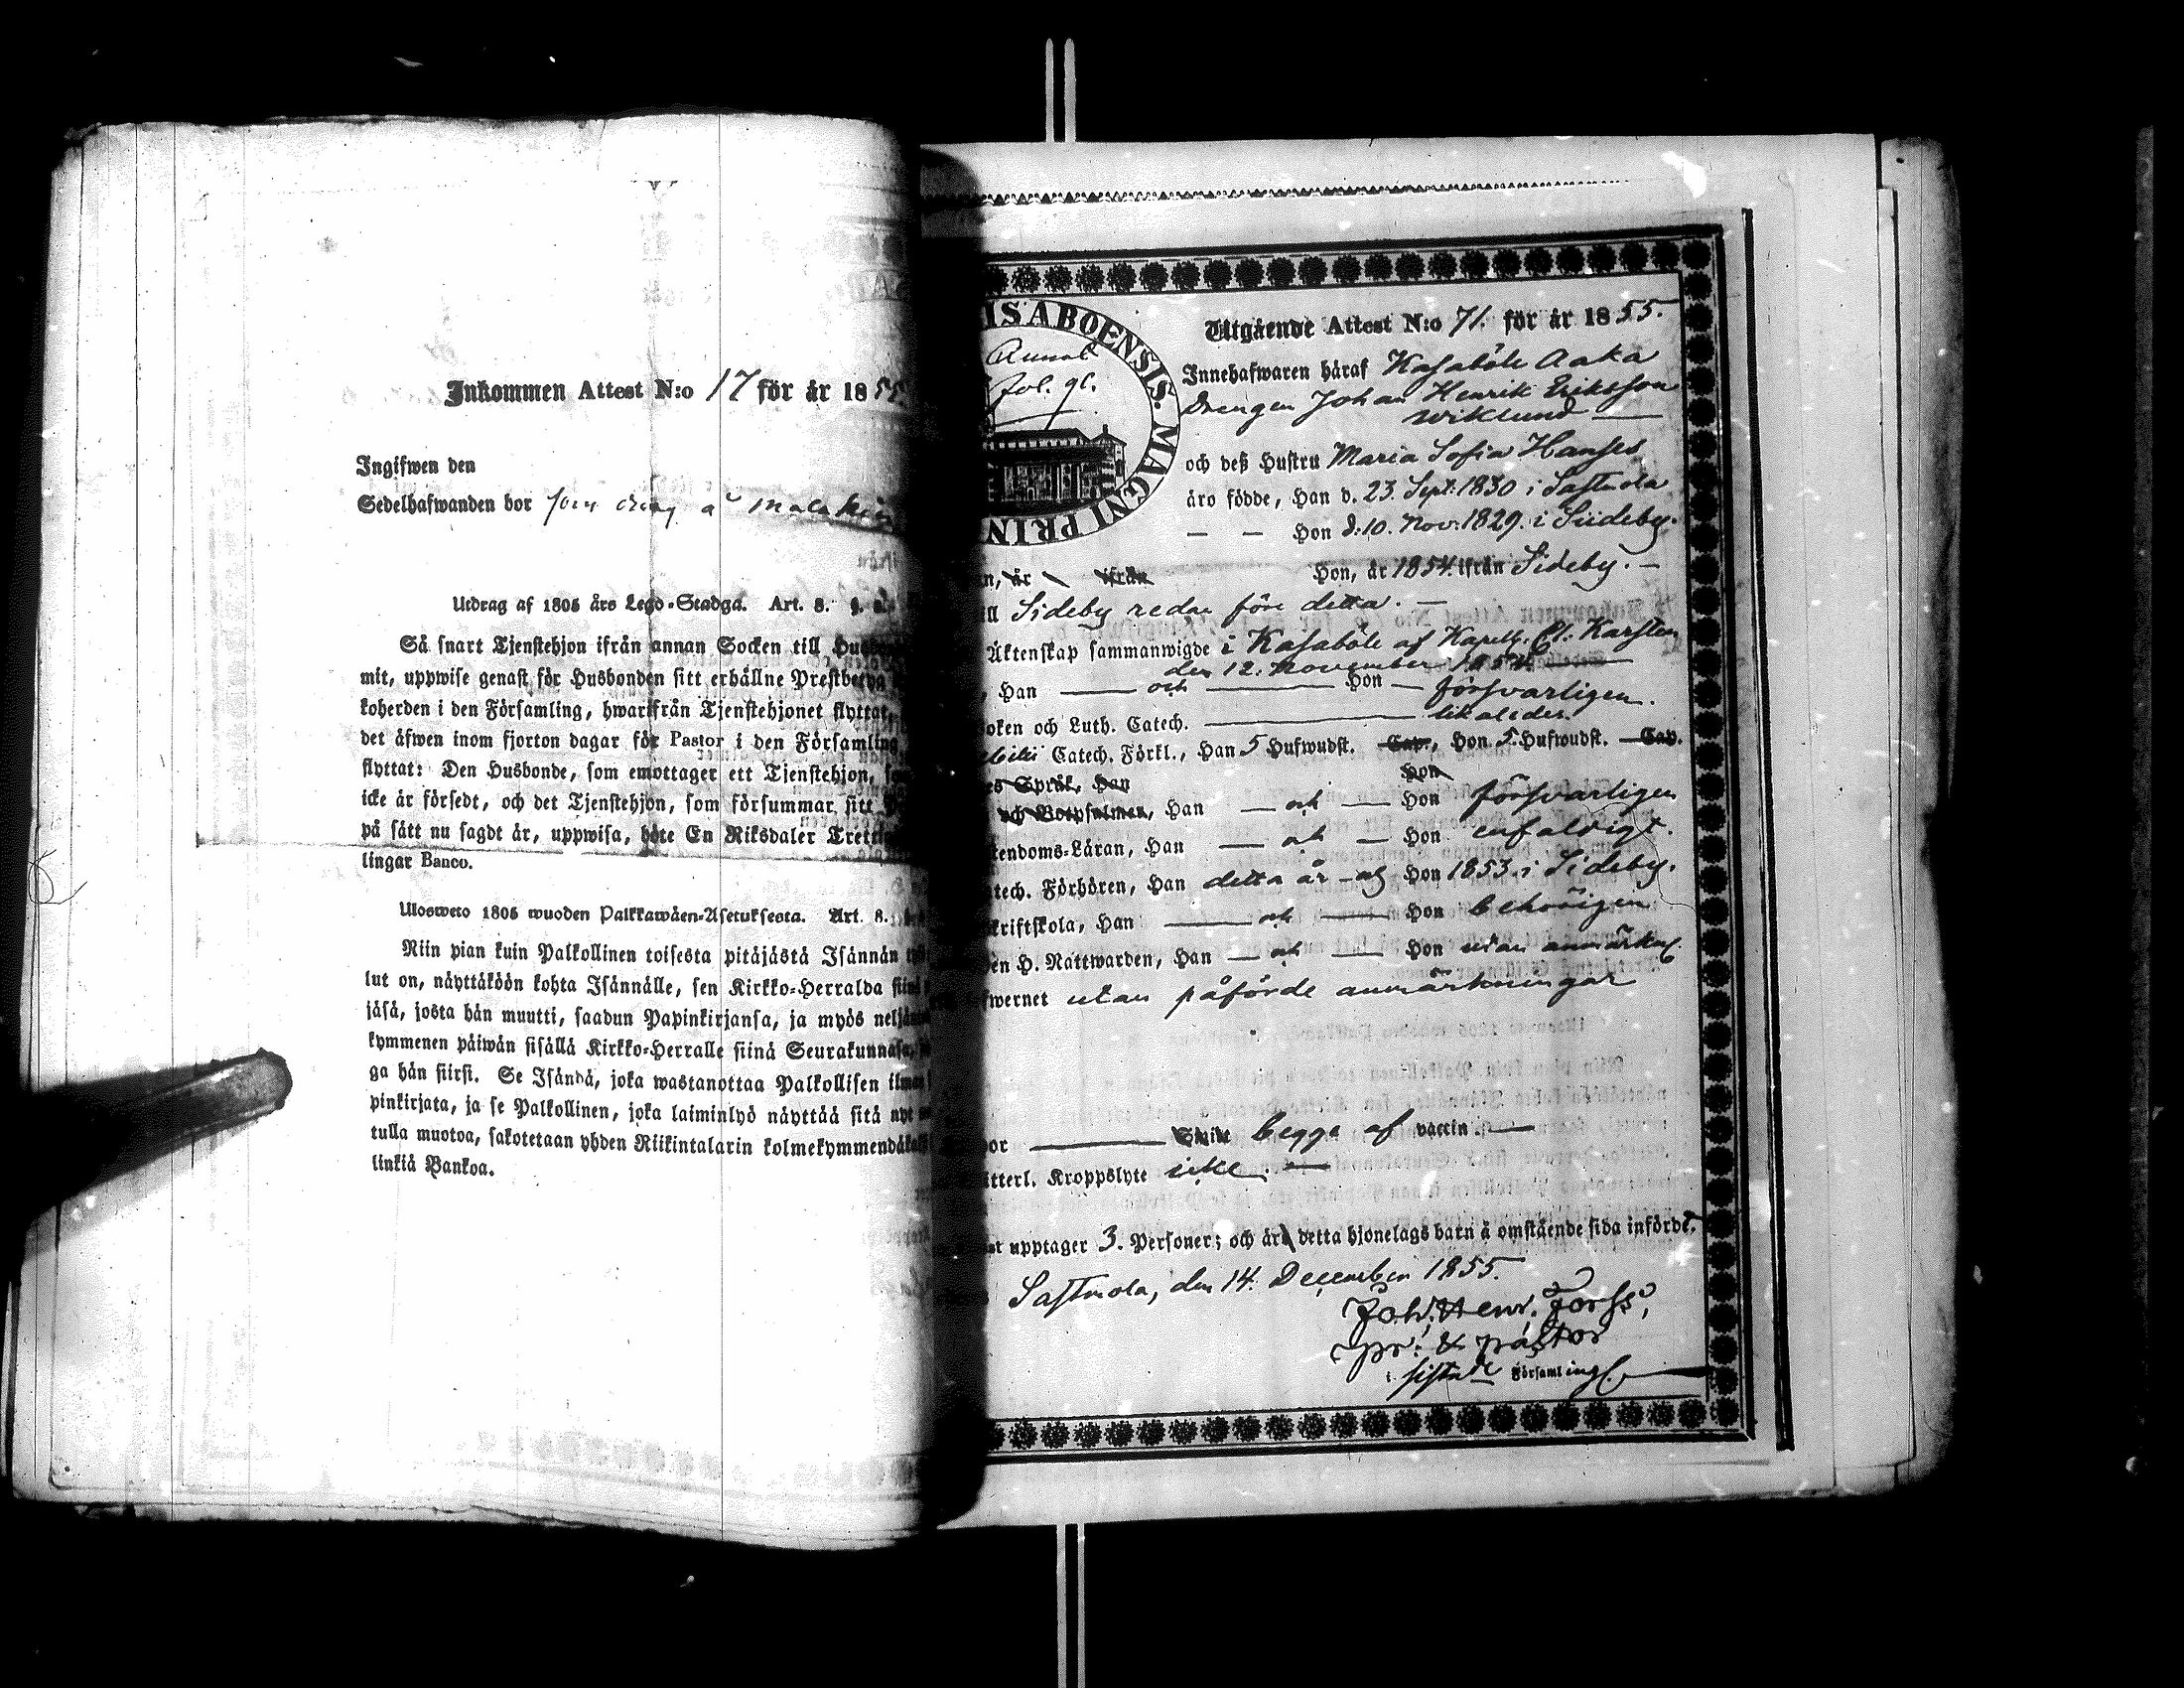 Inkommen Attest N:o 17 för år 18
Ingifwen den
Sedelhafwanden bor som dräng å
Utdrag af 1805 års Lego-Stadga. Art. 8. §.
Så snart Tjenstehjon ifrån annan Socken till
mit, uppwise genast för Husbonden sitt erhållne Prestbetyg
koherden i den Församling, hwarifrån Tjenstehjonet flyttat,
det äfwen inom fjorton dagar för Pastor i den Församling
flyttat: Den Husbonde, som emottager ett Tjenstehjon,
icke är försedt, och det Tjenstehjon, som försummar sitt
på sätt nu sagdt är, uppwisa, böte En Riksdaler
lingar Banco.
Uloswето 1805 wuoden Palkkawäen-Asetuksesta. Art. 8.
Niin pian kuin Palkollinen toisesta pitäjästä Isännän
lut on, näyttäköön kohta Isännälle, sen Kirkko-Herralda
jäsä, josta hän muutti, saadun Papinkirjansa, ja myös
kymmenen päiwän sisällä Kirkko-Herralle siinä Seurakunnasa,
ga hän siirsi. Se Isändä, joka wastanottaa Palkollisen ilman
pinkirjata, ja se Palkollinen, joka laiminlyö näyttää sitä nyt
tulla muotoa, sakotetaan yhden Riikintalarin
linkiä Bankoa.
IS ABOENSIS. MAGNI PRIN
Fol. 91.
Utgående Attest N:o 71. för år 1855.
Innehafwaren häraf Kasaböle Aaka
Drengen Johan Henrik Eriksson
Wiklund
och deß Hustru Maria Sofia Hansds
äro födde, Han d. 23. Sept: 1830 i Sastmola
Hon d: 10. Nov: 1829. i Sideby.
n, år ifrån Hon, år 1854. ifrån Sideby.
ll Sideby redan före detta.
Äktenskap sammanwigde i Kasaböle af Kapell. Karsten
den 12. November 1854.
, Han och Hon försvarligen.
oken och Luth. Catech. likaledes.
Catech. Förkl., Han 5 Hufwudst. Cap., Hon 5. Hufwudst. Cap.
es Språk, Han Hon
och Botpsalmen, Han och Hon försvarligen
tendoms-Läran, Han och Hon enfaldigt.
tech. Förhören, Han detta år och Hon 1853. i Sideby.
kriftskola, Han och Hon behörigen
en H. Nattwarden, Han och Hon utan anmärkn.
wernet utan påförde anmärkningar
or begge af vaccin
itterl. Kroppslyte icke
st upptager 3. Personer; och är detta hjonelags barn å omstående sida infördt.
Sastmola, den 14. December 1855.
Joh. Henr. Forss,
pr: & pastor
i Församling